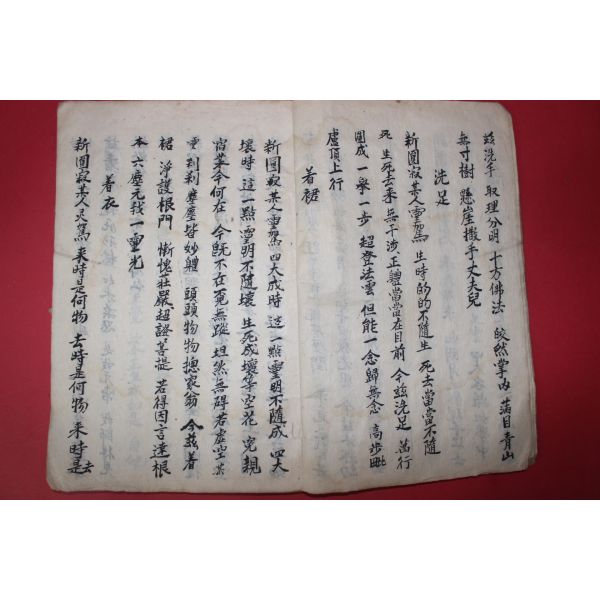 玆洗手 取理分明 十方佛法 皎然掌內 滿目青山
無寸樹 懸崖撒手丈夫兒
洗足
新圓寂某人靈駕 生時的的不隨生 死去當當不隨
死 生死去來無干涉 正體當當在目前 今玆洗足 萬行
圓成 一擧一步 超登法雲 但能一念歸無念 高步毗
盧頂上行
着裙
新圓寂某人靈駕 四大成時 這一點靈明不隨成 四大
壞時 這一點靈明不隨壞 生死成壞等空花 冤親
宿業今何在 今旣不在覓無蹤 坦然無碍若虛空 某
靈 刹刹塵塵皆妙軆 頭頭物物摠家翁 今玆着
裙 淨護根門 慚愧莊嚴 超證菩提 若得因言達根
本 六塵元我一靈光
着衣
新圓寂某人灵駕 来時是何物 去時是何物 来時是去